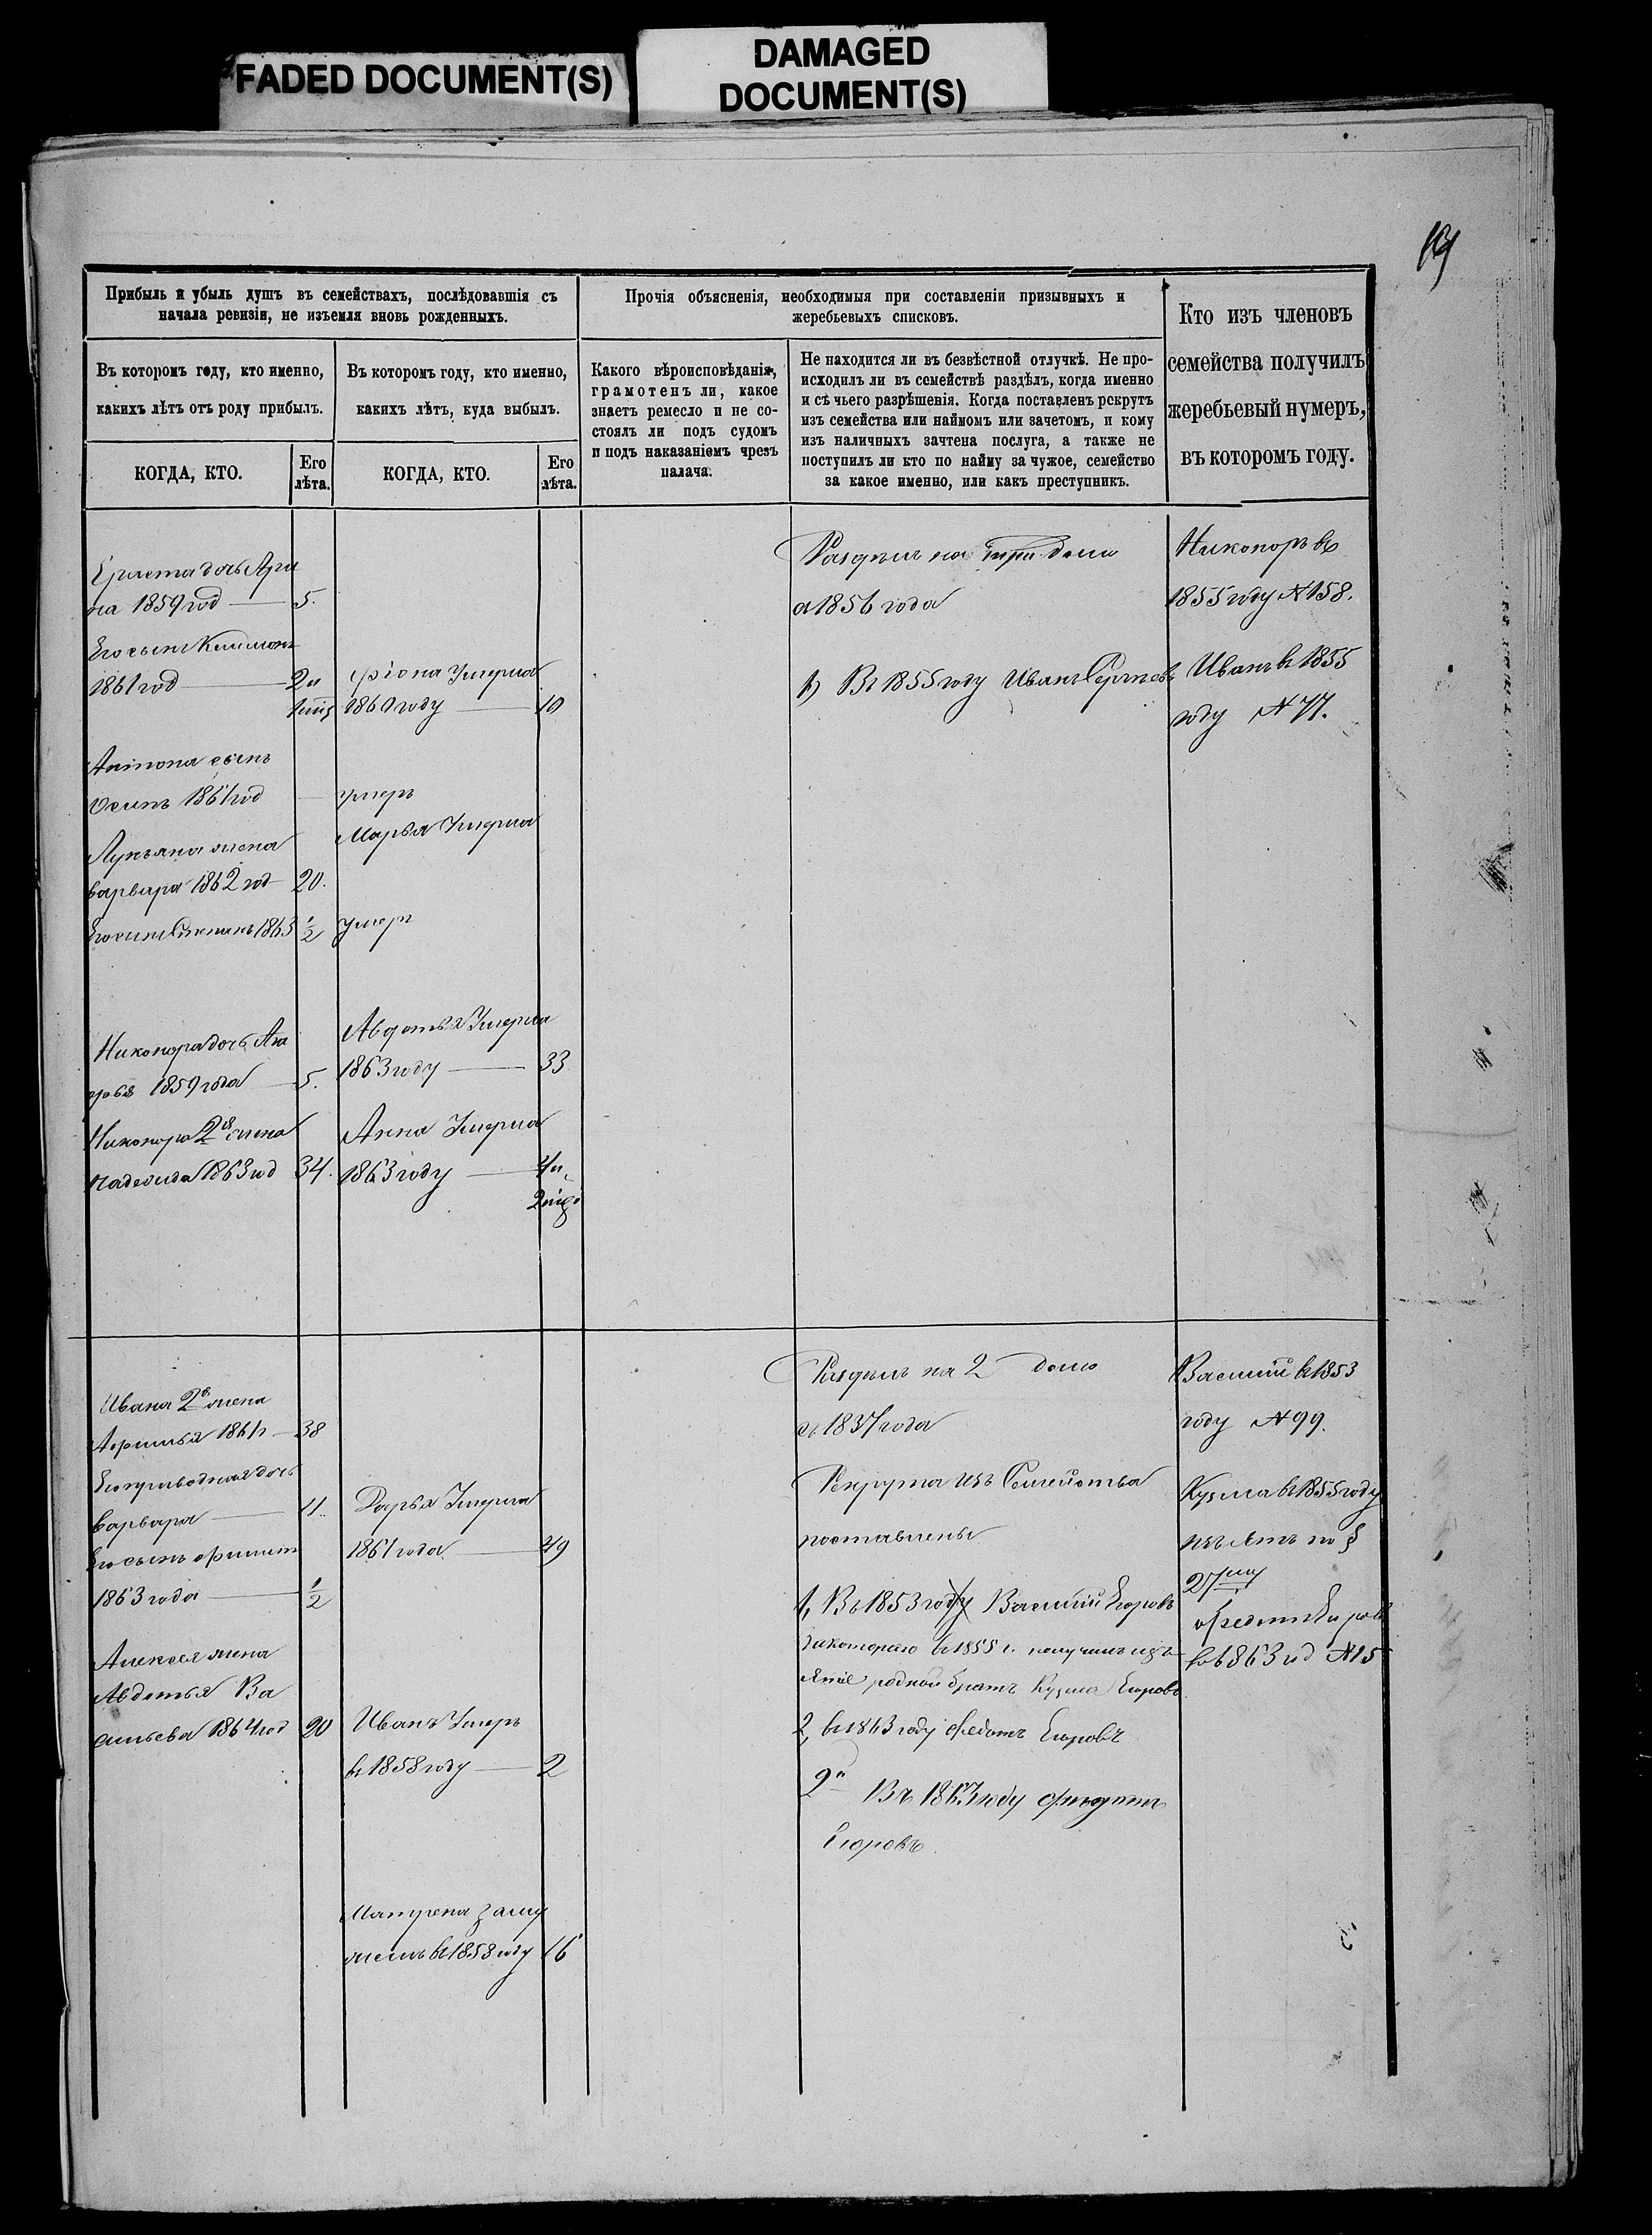 FADED DOCUMENT(S)
DAMAGED
DOCUMENT(S)
19
Прибыль и убыль душъ въ семействахъ, послѣдовавшія съ
начала ревизіи, не изъемля вновь рожденныхъ.
Въ которомъ году, кто именно,
какихъ лѣтъ отъ роду прибылъ.
КОГДА, КТО.
Его
лѣта.
Въ которомъ году, кто именно,
какихъ лѣтъ, куда выбылъ.
КОГДА, КТО.
Его
лѣта.
Прочія объясненія, необходимыя при составленіи призывныхъ и
жеребьевыхъ списковъ.
Какого вѣроисповѣданія,
грамотенъ ли, какое
знаетъ ремесло и не со-
стоялъ ли подъ судомъ
и подъ наказаніемъ чрезъ
палача.
Не находится ли въ безвѣстной отлучкѣ. Не про-
исходилъ ли въ семействѣ раздѣлъ, когда именно
и съ чьего разрѣшенія. Когда поставленъ рекрутъ
изъ семейства или наймомъ или зачетомъ, и кому
изъ наличныхъ зачтена послуга, а также не
поступилъ ли кто по найму за чужое, семейство
за какое именно, или какъ преступникъ.
Кто изъ членовъ
семейства получилъ
жеребьевый нумеръ,
въ которомъ году.
дочь Ари
на 1859 год 5.
Его сынъ
1861 год 2 и
Антона сынъ
Осипъ 1861 год
Лукьяна жена
Варвара 1862 год 20.
Его сынъ Степанъ 1863 1/2
Никонора дочь Ага
1859 года 5.
Никонора 2я жена
Надежида 1863 год 34.
Умерла
1860 году 10
умеръ
Марья Умерла
Умеръ
Авдотья Умерла
1863 году 33
Анна Умерла
1863 году
Раздѣлъ на три дома
1856 года
1) Въ 1855 году Иванъ
Никоноръ въ
1855 году № 158.
Иванъ въ 1855
году № 77.
Ивана 2я жена
38
дочь
Варвара 11.
Его сынъ Филипъ
1863 года 1/2
Алексея жена
Авдотья Ва
сильева 1864 год 20
Дарья Умерла
1861 года 49
Иванъ Умеръ
въ 1858 году 2
Матрена заму
жемъ въ 1858 году 16
Раздѣлъ на 2 дома
съ 1837 года
Рекрута изъ Семейства
поставлены
1, Въ 1853 году Василий Егоровъ
за котораго въ 1855 г. получилъ изъ-
ятіе родной братъ Кузма Егоровъ
2, въ 1863 году Федотъ Егоровъ
2й Въ 1863 году Фѣдотъ
Егоровъ.
Василій въ 1853
году № 99.
Кузма въ 1855 году
изъятъ по §
27му
Федотъ Егоровъ
въ 1863 год № 15